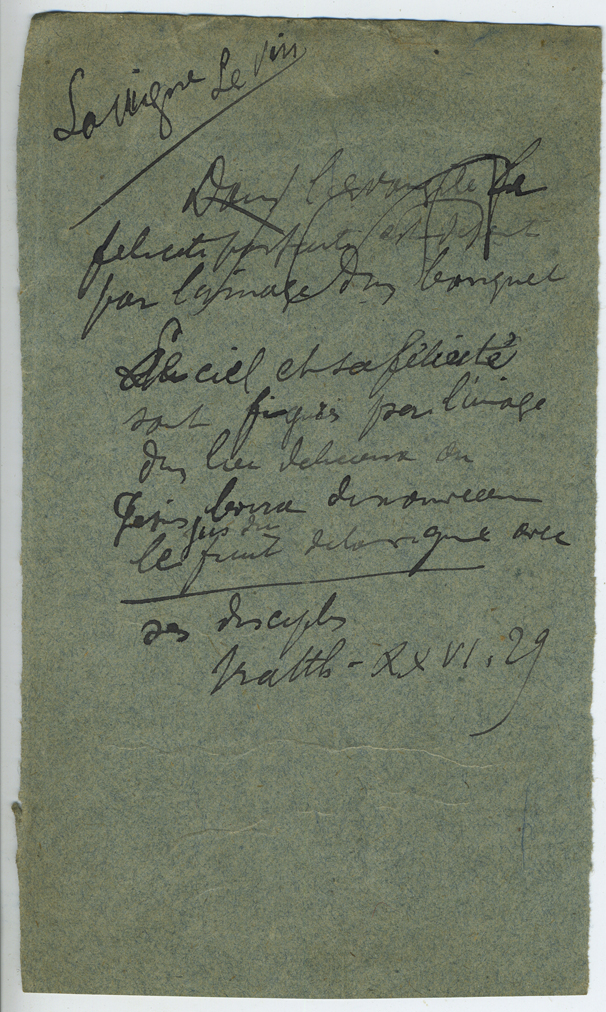 La Vigne Le Vin
Dans l'évangile la
felicité parfaite est
par l'image du banquet
Le ciel et sa félicité
sont figurés par l'image
du lieu délicieux où
Jésus boira de nouveau
jus du
le fruit de la vigne avec
ses disciples
Matth - XXVI. 29